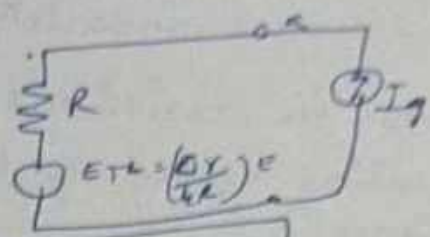 R
I_g
E_Th = (Δr/4R) E